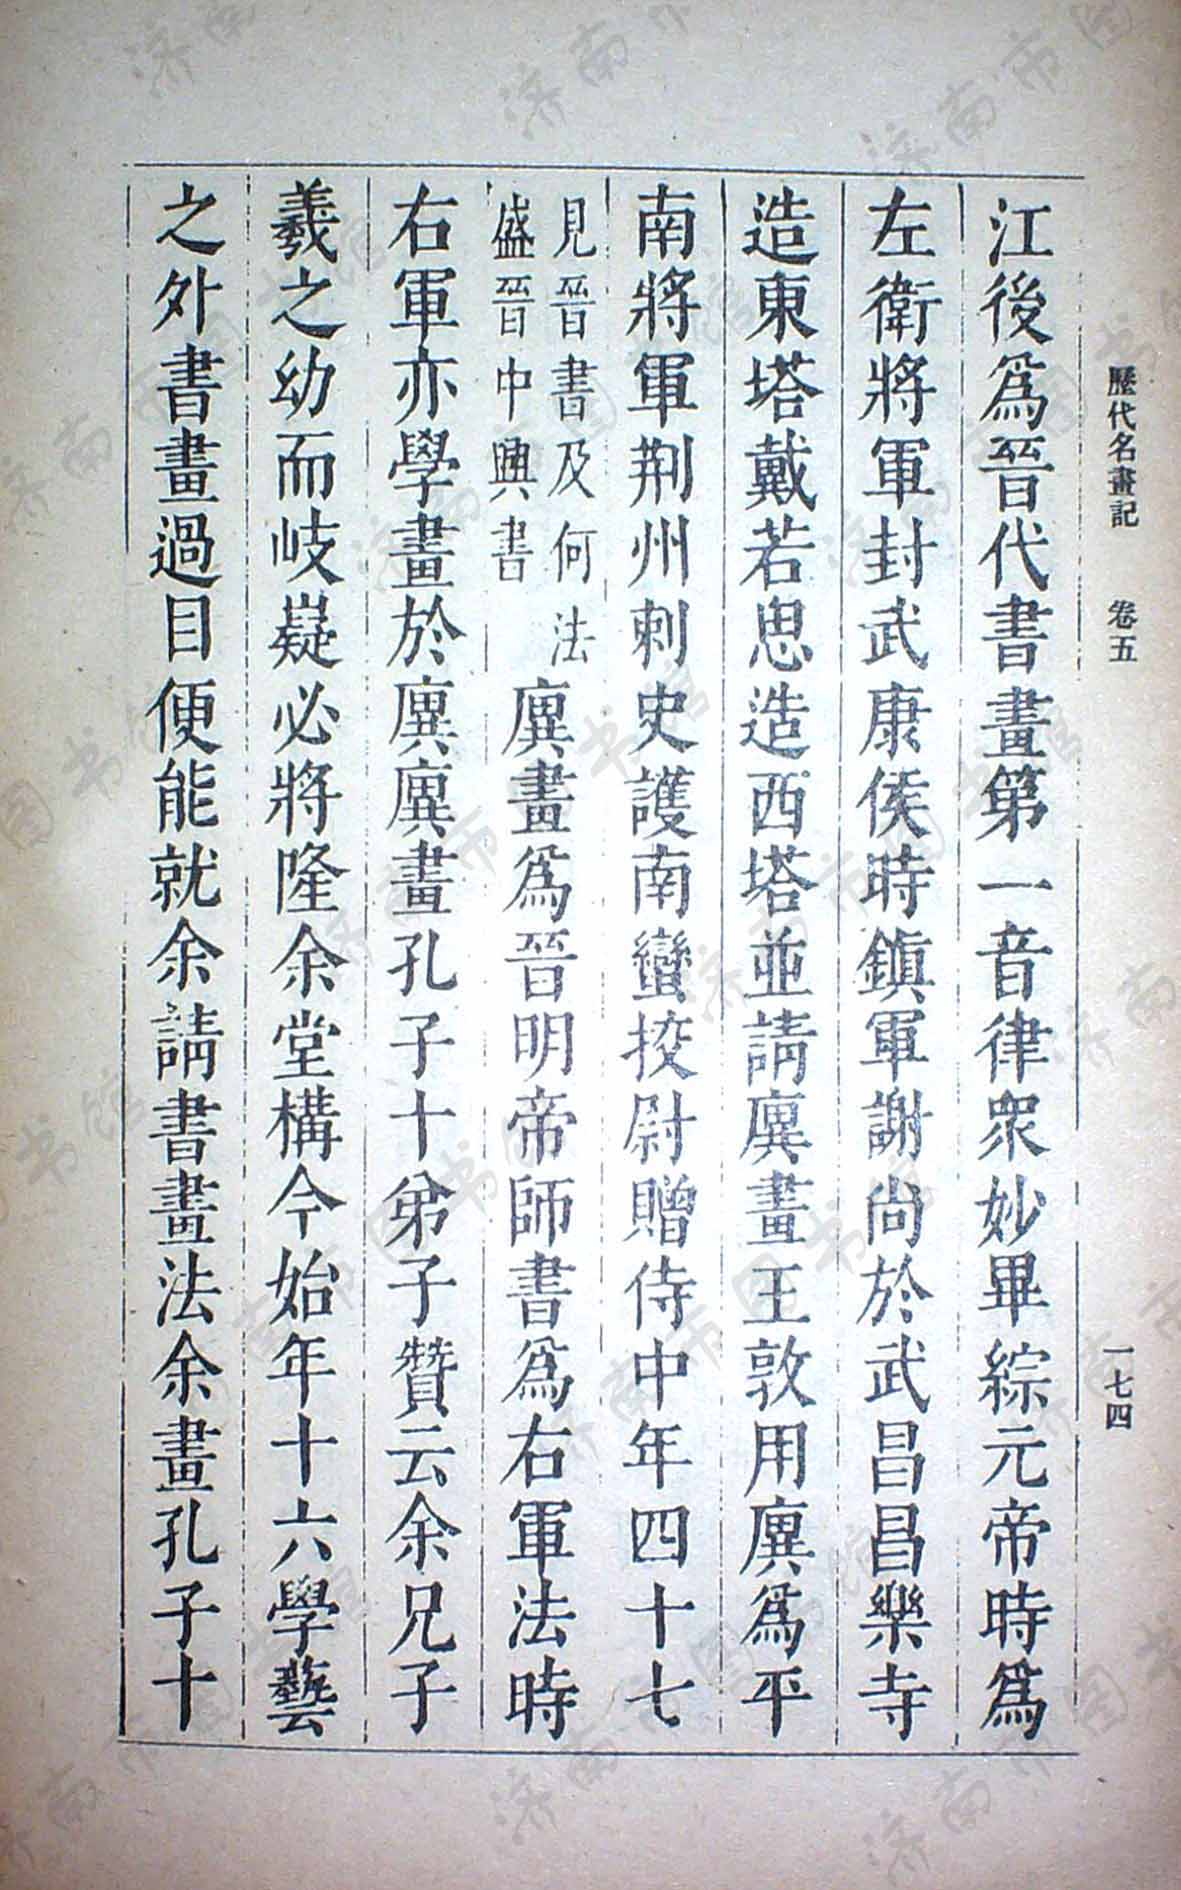 歷代名畫記　卷五　一七四
江後爲晉代書畫第一音律衆妙畢綜元帝時爲
左衛將軍封武康侯時鎮軍謝尚於武昌昌樂寺
造東塔戴若思造西塔並請廙畫王敦用廙爲平
南將軍荆州刺史護南蠻挍尉贈侍中年四十七
見晉書及何法
盛晉中興書
廙畫爲晉明帝師書爲右軍法時
右軍亦學畫於廙廙畫孔子十弟子贊云余兄子
羲之幼而岐嶷必將隆余堂構今始年十六學藝
之外書畫過目便能就余請書畫法余畫孔子十
济南市图书馆